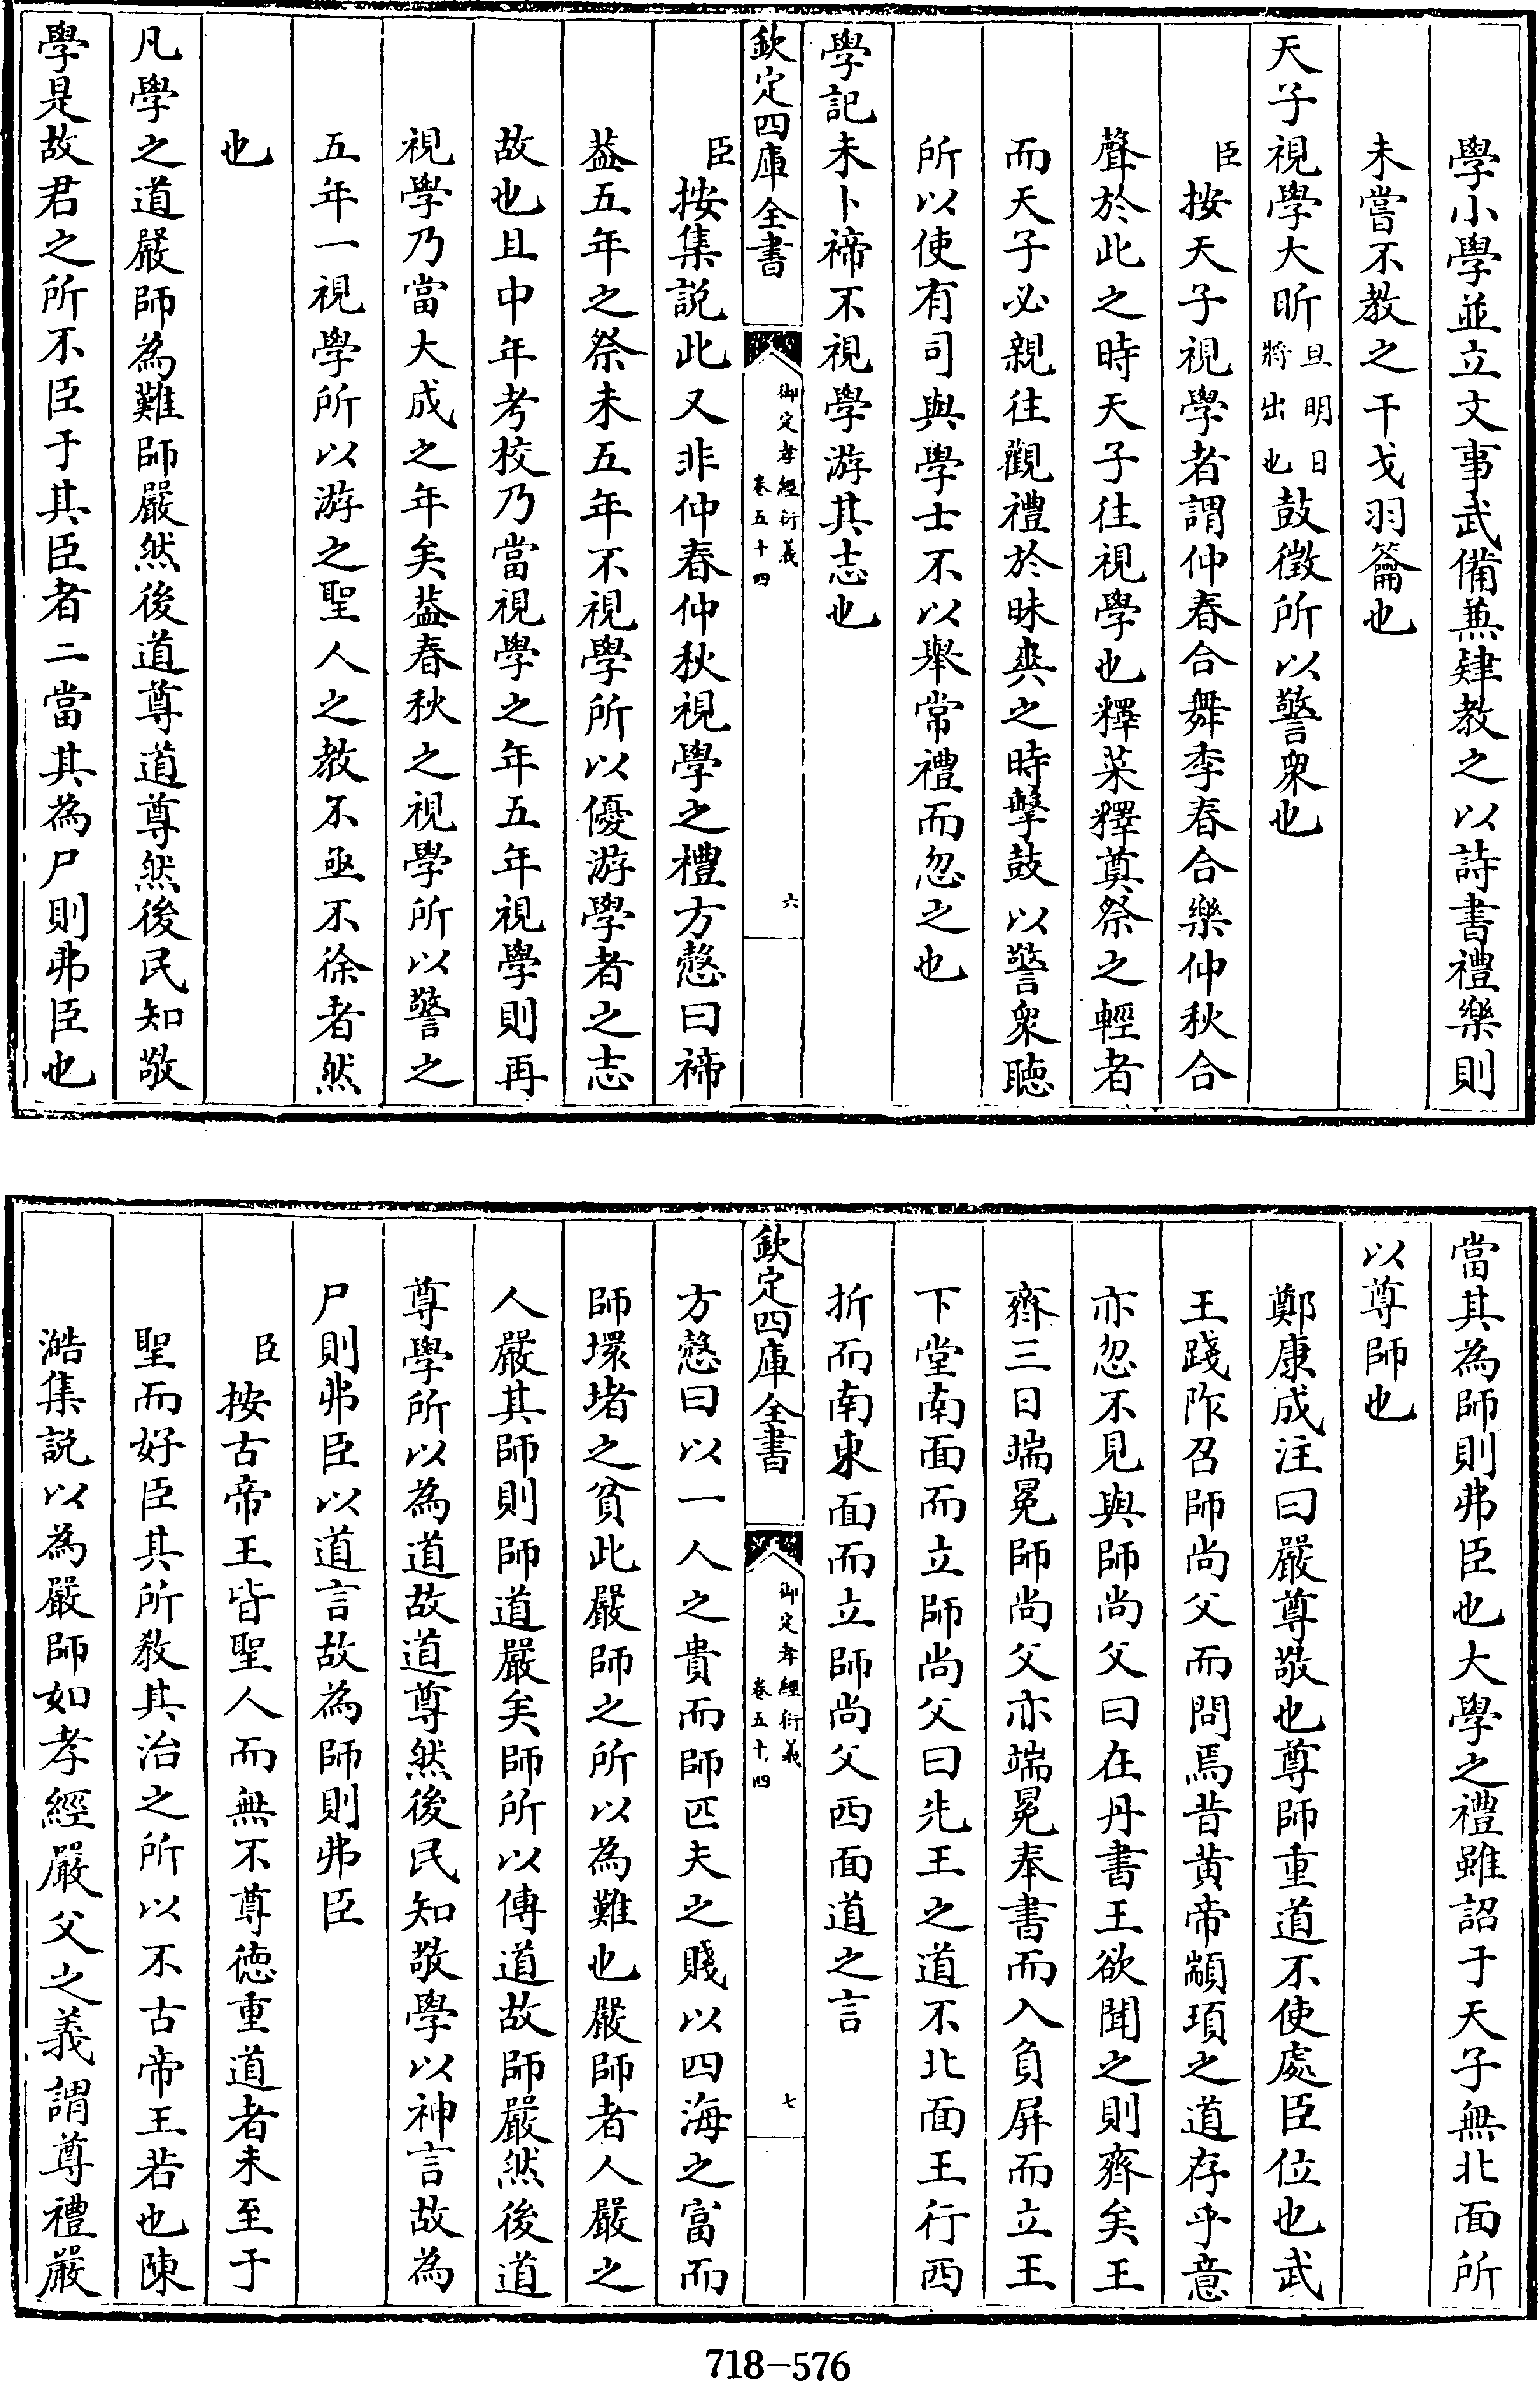 學小學並立文事武備兼肄教之以詩書禮樂則
未嘗不教之干戈羽籥也
天子視學大昕旦明日將出也鼓徵所以警衆也
臣按天子視學者謂仲春合舞季春合樂仲秋合
聲於此之時天子往視學也釋菜釋奠祭之輕者
而天子必親往觀禮於昧爽之時擊鼓以警衆聽
所以使有司與學士不以舉常禮而忽之也
學記未卜禘不視學游其志也
欽定四庫全書
御定孝經衍義
卷五十四
六
臣按集説此又非仲春仲秋視學之禮方慤曰禘
葢五年之祭未五年不視學所以優游學者之志
故也且中年考校乃當視學之年五年視學則再
視學乃當大成之年矣葢春秋之視學所以警之
五年一視學所以游之聖人之教不亟不徐者然
也
凡學之道嚴師為難師嚴然後道尊道尊然後民知敬
學是故君之所不臣于其臣者二當其為尸則弗臣也
當其為師則弗臣也大學之禮雖詔于天子無北面所
以尊師也
鄭康成注曰嚴尊敬也尊師重道不使處臣位也武
王踐阼召師尚父而問焉昔黄帝顓頊之道存乎意
亦忽不見與師尚父曰在丹書王欲聞之則齊矣王
齊三日端冕師尚父亦端冕奉書而入負屏而立王
下堂南面而立師尚父曰先王之道不北面王行西
折而南東面而立師尚父西面道之言
欽定四庫全書
御定孝經衍義
卷五十四
七
方慤曰以一人之貴而師匹夫之賤以四海之富而
師環堵之貧此嚴師之所以為難也嚴師者人嚴之
人嚴其師則師道嚴矣師所以傳道故師嚴然後道
尊學所以為道故道尊然後民知敬學以神言故為
尸則弗臣以道言故為師則弗臣
臣按古帝王皆聖人而無不尊徳重道者未至于
聖而好臣其所教其治之所以不古帝王若也陳
澔集説以為嚴師如孝經嚴父之義謂尊禮嚴
718-576